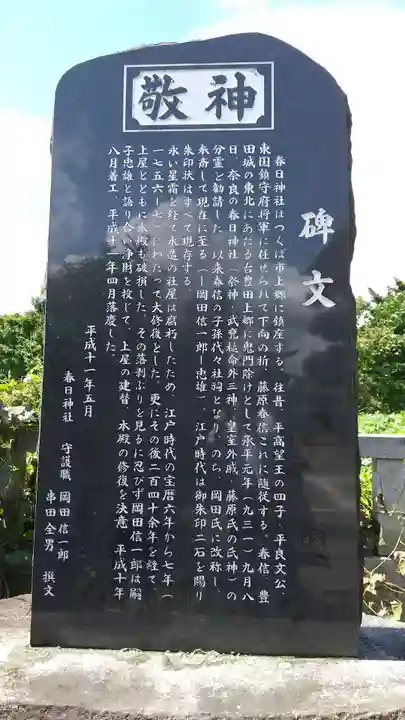 敬神
碑文
春日神社はつくば市上郷に鎮座する。往昔、平高望王の四子・平良文公、
東国鎮守府将軍に任せられて下向の折、藤原春信これに随従する。春信、豊
田城の東北にあたる台豊田上郷に鬼門除けとして承平元年（九三一）九月八
日、奈良の春日神社（祭神・武甕槌命外三神・皇室外戚・藤原氏の氏神）の
分霊を勧請した。以来春信の子孫代々社祠となり、のち、岡田氏に改称し、
奉斎して現在に至る（―岡田信一郎―忠雄）。江戸時代は御朱印二石を賜り
朱印状はすべて現存する。
永い星霜を経て木造の社屋は腐朽したため、江戸時代の宝暦六年から七年（
一七五六―七）にわたって大修復をした。更にその後二百四十余年を経て、
上屋とともに本殿も破損した。その落剥ぶりを見るに忍びず岡田信一郎は嗣
子忠雄と語り合い浄財を投じて、上屋の建替、本殿の修復を決意、平成十年
八月着工、平成十一年四月落慶した。
平成十一年五月
春日神社　守護職　岡田信一郎
串田全男　撰文